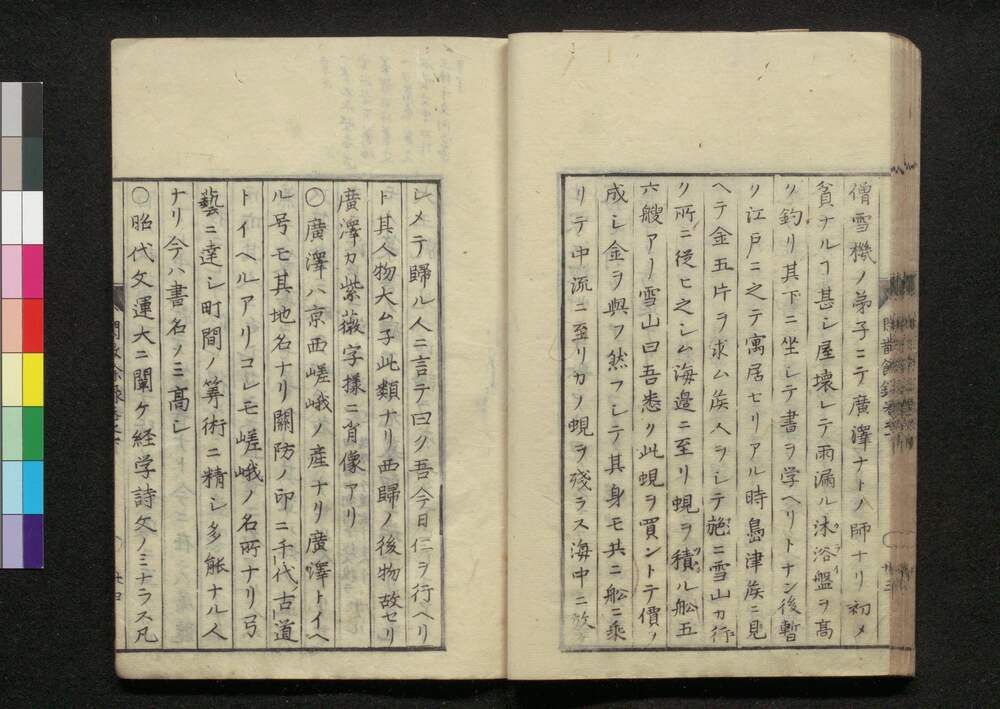 僧雪機ノ弟子ニテ廣澤ナトノ師ナリ初メ
貧ナルヿ甚シ屋壊レテ雨漏ル沐浴盤ヲ高
ク釣リ其下ニ坐シテ書ヲ学ヘリトナン後暫
ク江戸ニ之テ寓居セリアル時島津侯ニ見
ヘテ金五片ヲ求ム侯人ヲシテ施ニ雪山カ行
ク所ニ従ヒ之シム海邉ニ至リ蜆ヲ積ル舩五
六艘アリ雪山曰吾悉ク此蜆ヲ買ントテ價ノ
成シ金ヲ與フ然フシテ其身モ共ニ舩ニ乗
リテ中流ニ至リカノ蜆ヲ残ラス海中ニ放
シメテ歸ル人ニ言テ曰ク吾今日仁ヲ行ヘリ
ト其人物大ム子此類ナリ西歸ノ後物故セリ
廣澤カ紫薇字様ニ肖像アリ
〇廣澤ハ京西嵯峨ノ産ナリ廣澤トイヘ
ル号モ其地名ナリ關防ノ印ニ千代ノ古道
トイヘルアリコレモ嵯峨ノ名所ナリ弓
藝ニ達シ町間ノ筭術ニ精シ多能ナル人
ナリ今ハ書名ノミ高シ
〇昭代文運大ニ闡ケ経学詩文ノミナラス凡